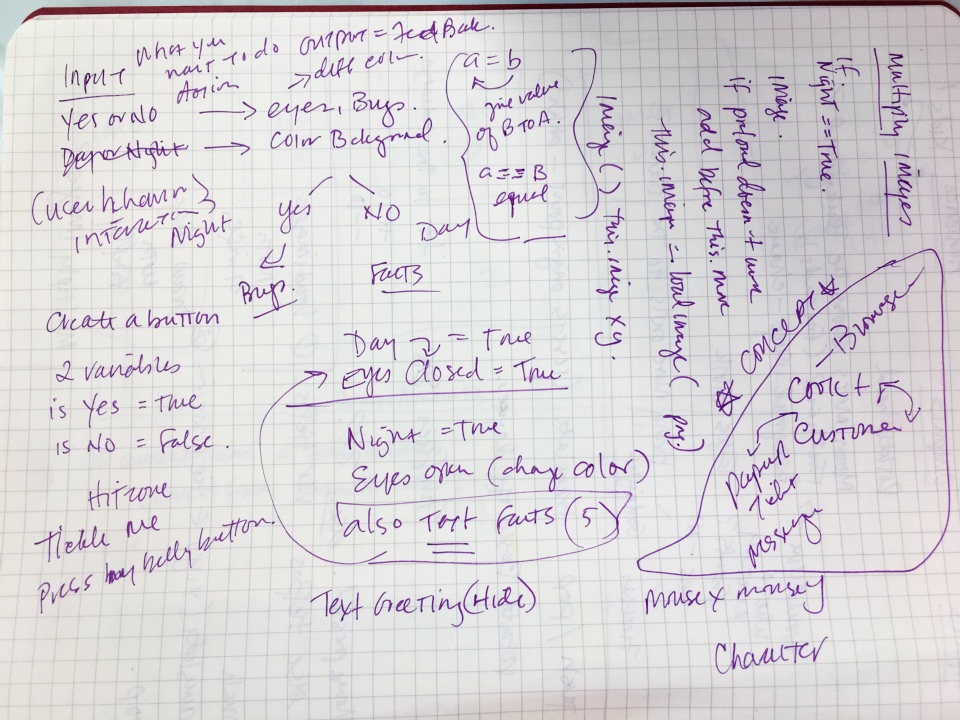 Input
What you
want to do
Action
output = Feed Back.
→ diff color.
Yes or No → eyes, Bugs.
Day or Night → Color Background.
(user behavior
interaction)
Night
yes
NO
Day
Bugs.
Facts
a = b
give value
of B to A.
a == B
equal
Create a button
2 variables
is Yes = True
is NO = False.
Hit zone
tickle me
Press my belly button.
Day = True
→ Eyes Closed = True
Night = True
Eyes open (change color)
also Text Facts (5)
Text Greeting (Hide)
Multiply images
if
Night == True.
image.
if preload doesn't work
add before this. name
this.image = loadimage( png)
image () this.image x y.
☆ CONCEPT ☆
— Browser
Cook +
Customer
Payment
Ticket
message
mouse x mouse y
Character